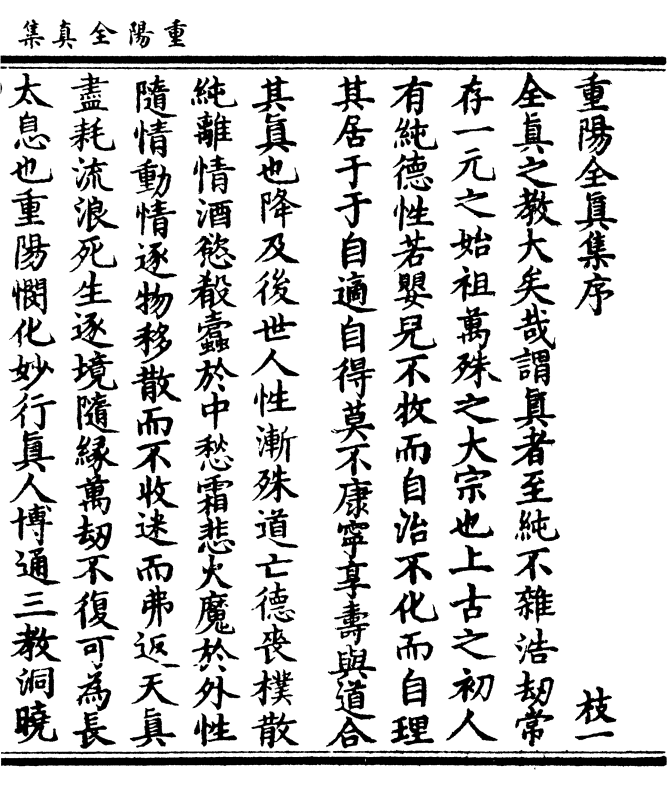 重陽全真集
重陽全眞集序 枝一
全眞之教大矣哉謂眞者至純不雜浩劫常
存一元之始祖萬殊之大宗也上古之初人
有純德性若嬰兒不牧而自治不化而自理
其居于于自適自得莫不康寧享壽與道合
其眞也降及後世人性漸殊道亡德喪樸散
純離情酒慾殽蠹於中愁霜悲火魔於外性
隨情動情逐物移散而不收迷而弗返天眞
盡耗流浪死生逐境隨緣萬劫不復可為長
太息也重陽憫化妙行眞人博通三教洞曉